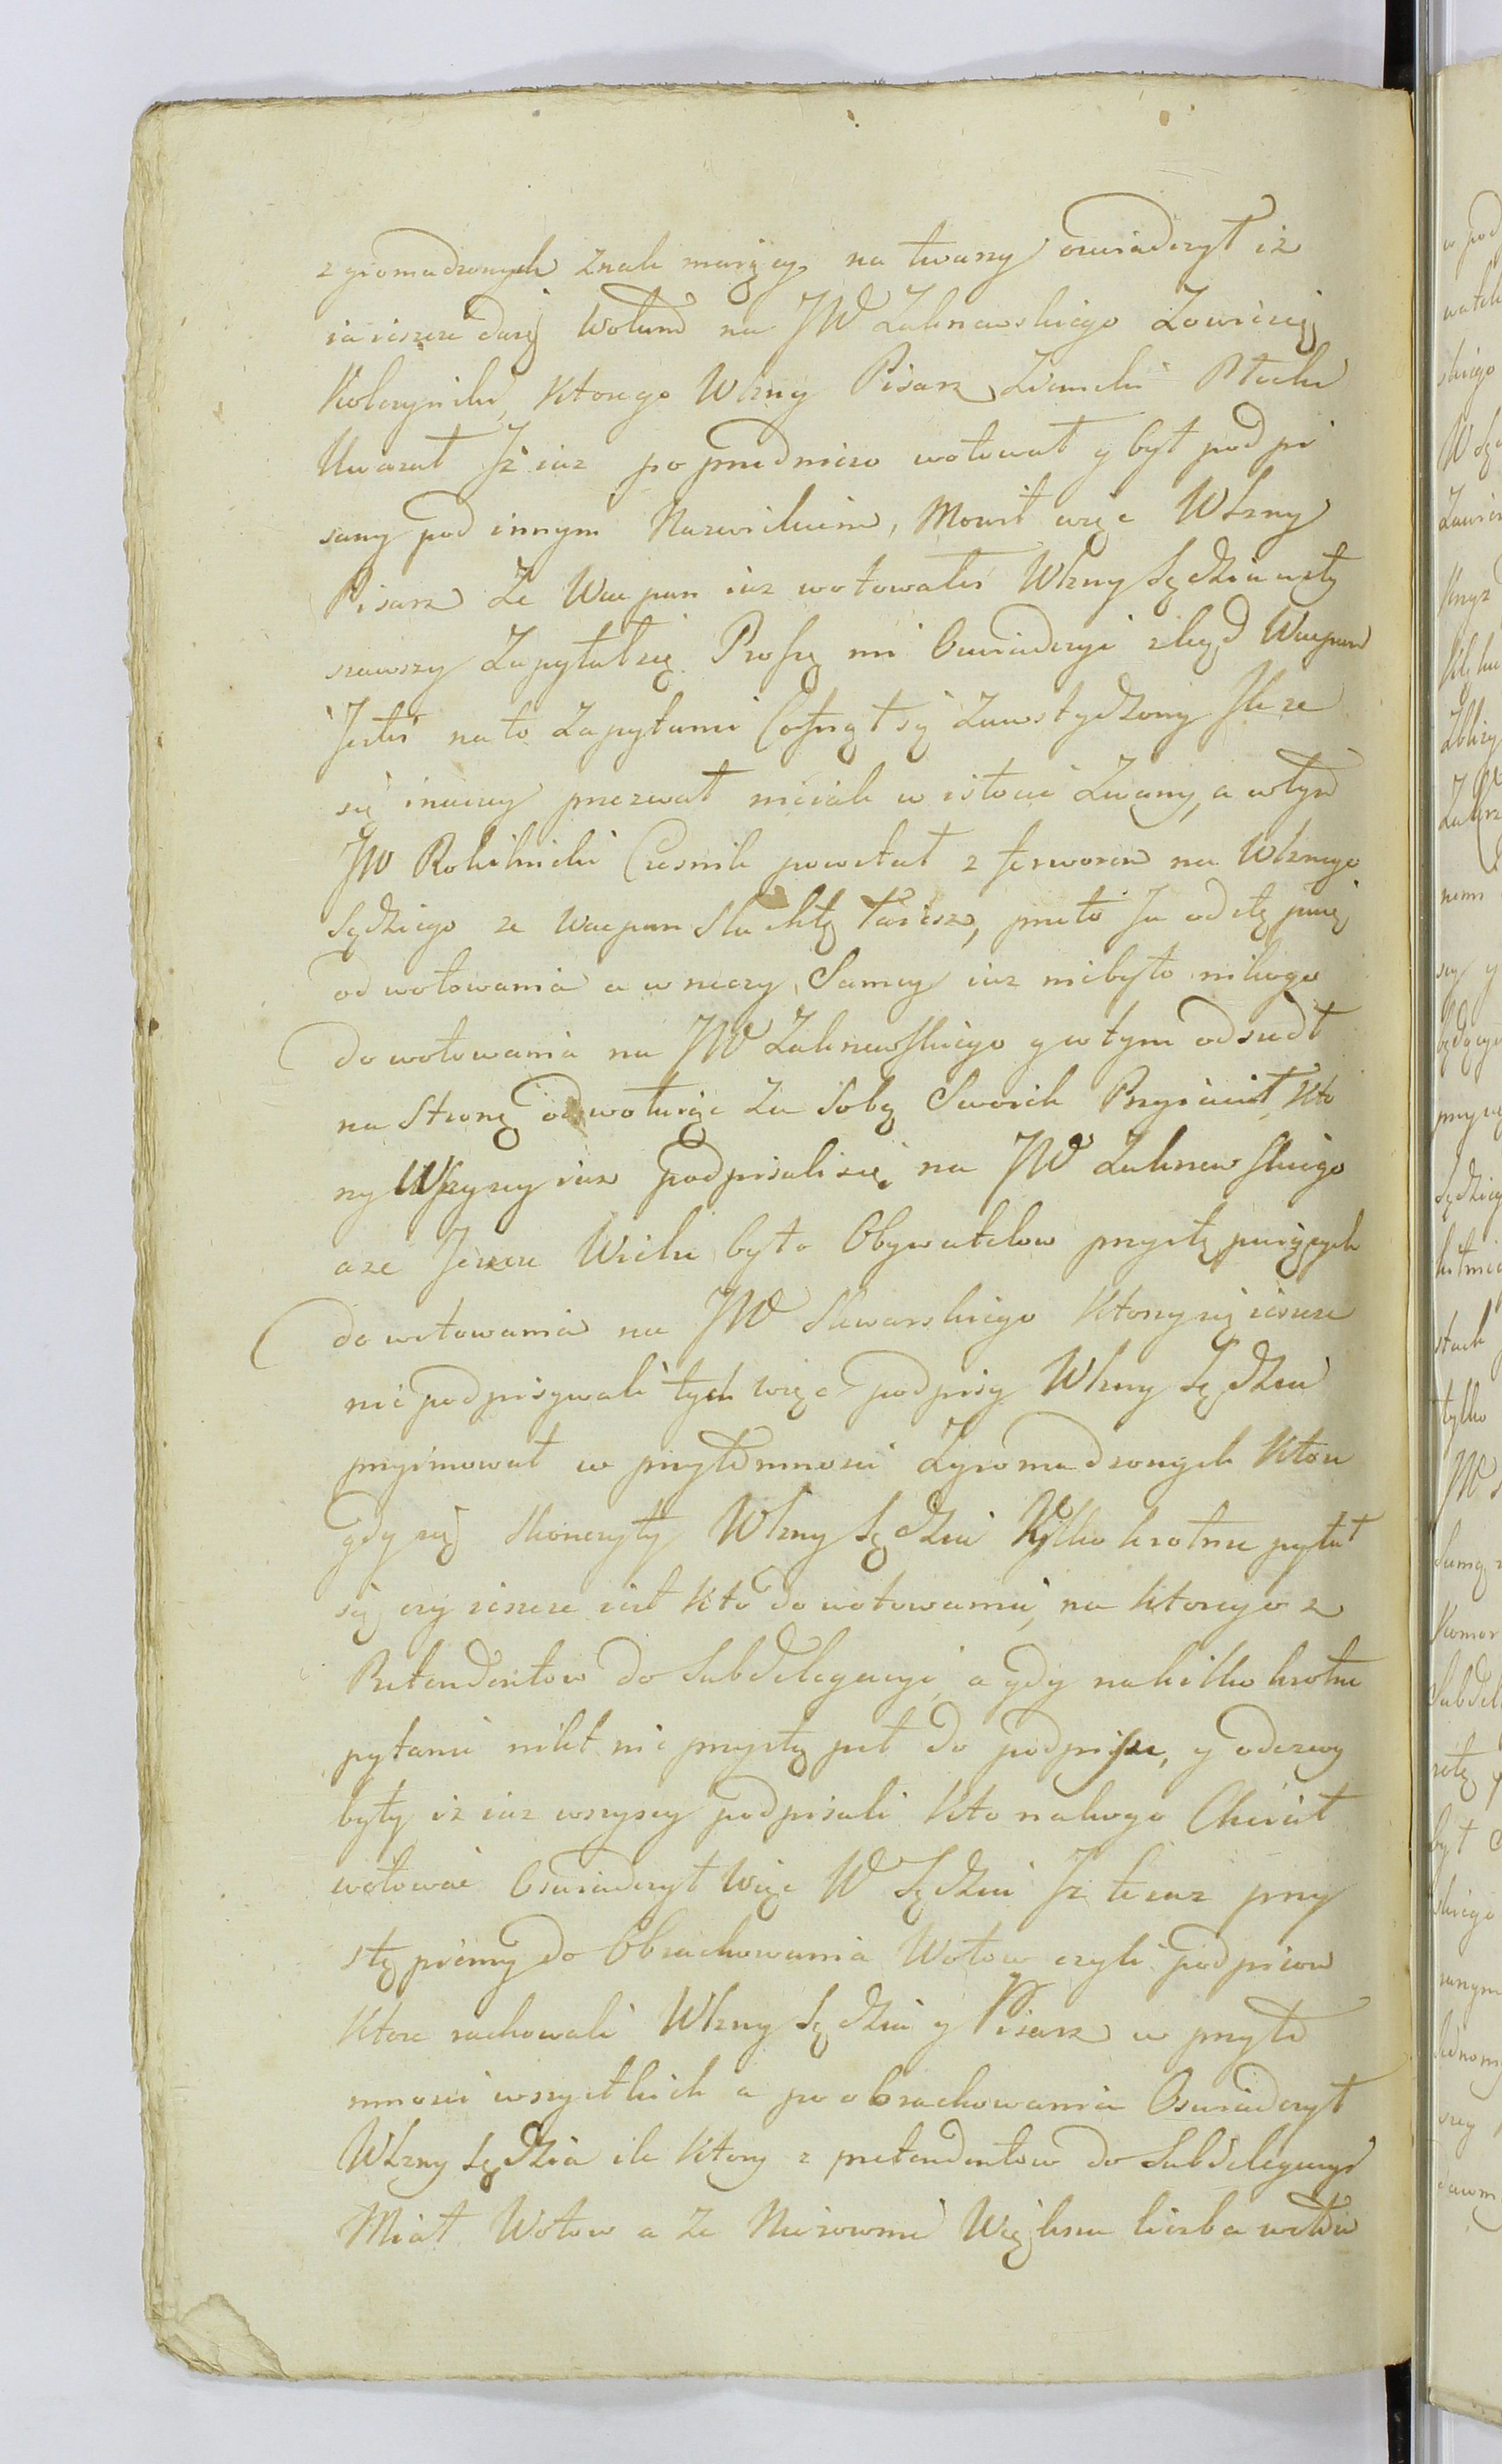 zgromadzonych znak maiący na twarzy oswiadczył iż
ia ieszcze daię Wotum na JW Zaknewskiego Łowiczię
Kolczynski, Ktorego Wlzny Pisarz Ziemski Płocki
Uwazał Jż iuz poprzedniczo wotował y był podpi
sany pod innym Nazwiskiem, Mowił więc Wlzny
Pisarz Ze Wacpan iuz wotowałes Wlzny Sędzia usły
szawszy Zapytał się Proszę mi Oswiadczyć zkąd Wacpan
Jesteś na to Zapytanie Cofnął się Zawstydzony Ile ze
się inaczey przezwał niż iak w istocie Zwany, a wtym
JW Rokitnicki Czesnik powstał z ferworem na Wlznego
Sędziego ze Wacpan Slachtę Taisz, przeto Ja odstępuię
od wotowania a w rzeczy Samey iuz niebyło nikogo
do wotowania na JW Zaknewskiego y wtym odszedł
na Stronę odwołuiąc Za Sobą Swoich Przyiaciół, Kto
rzy Wszyscy iuz podpisali się na JW Zaknewskiego
a ze Jeszcze Wielu było Obywatelow przystępuiących
do wotowania na JW Skwarskiego Ktorzy się ieszcze
nie podpisywali tych więc podpisy Wlzny Sędzia
przyimował w przytomnosci Zgromadzonych Ktore
gdy się skonczyły Wlzny Sędzia Kilko krotnie pytał
się czy ieszcze iest Kto do wotowania, na ktorego z
Pretendentow do Subdelegacyi, a gdy na kilko krotne
pytanie nikt nie przystępił do podpisu, y odezwy
były iz iuz wszyscy podpisali Kto na kogo Chciał
wotowac Oswiadczył Więc W Sędzia Jz teraz przy
stępiemy do Obrachowania Wotow czyli podpisow
Ktore rachowali Wlzny Sędzia y Pisarz w przyto
mnosci wszystkich a po obrachowania Oswiadczył
Wlzny Sędzia ile Ktory z pretendentow do Subdelegacyi
Miał Wotow a Ze Nierownie Większa liczba wotow